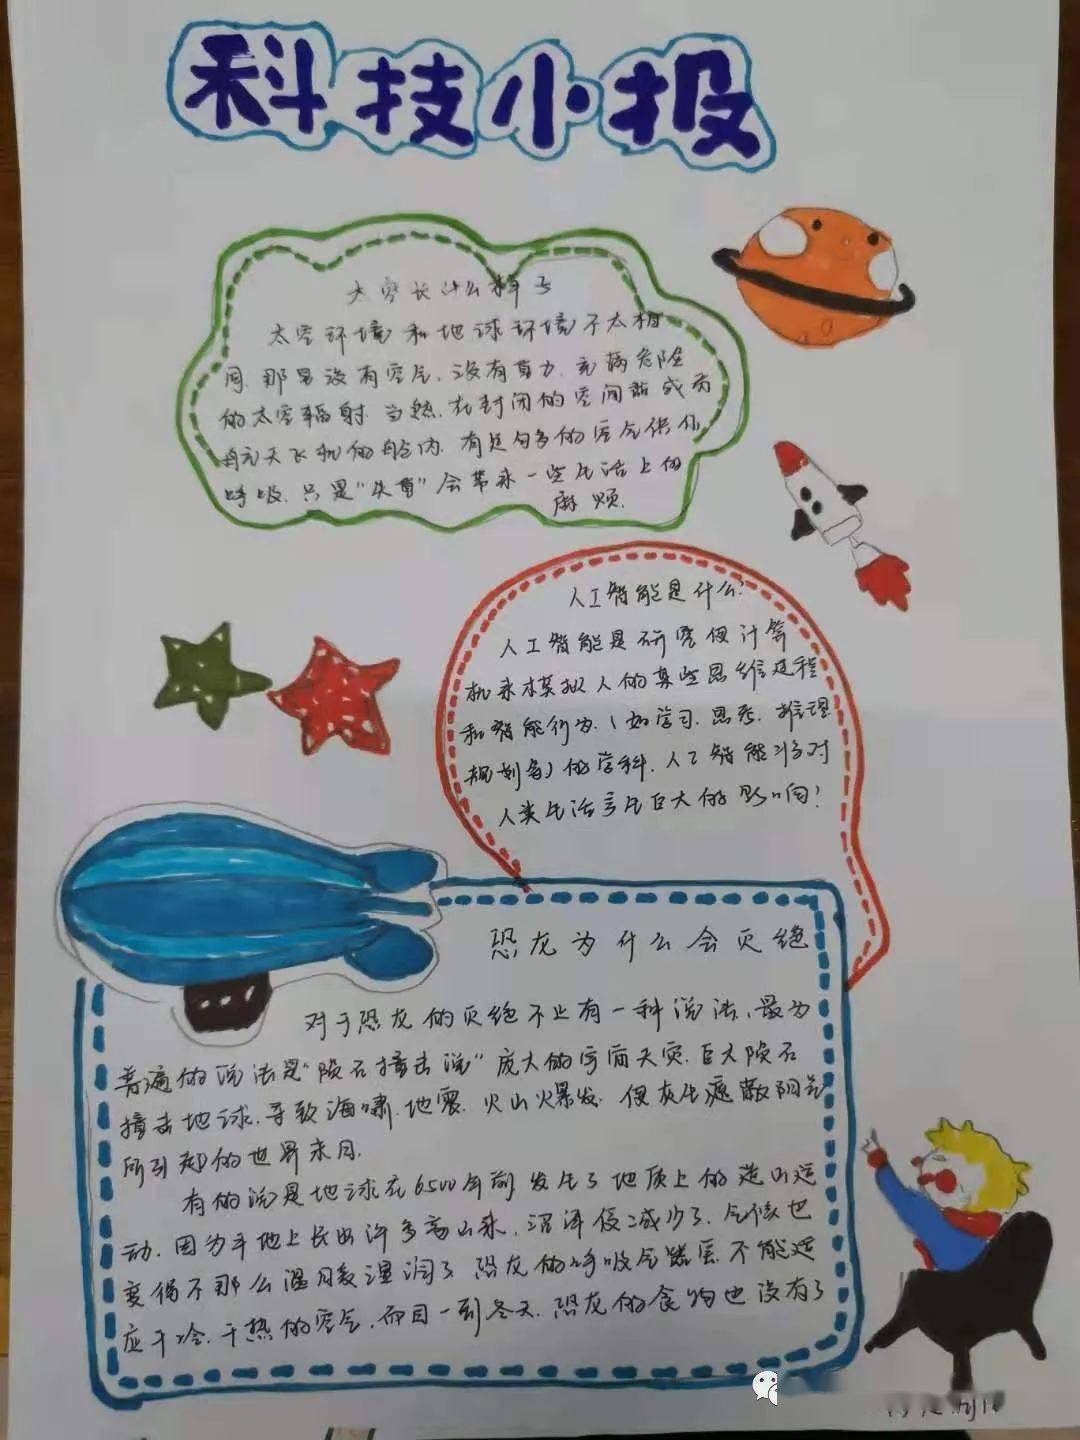 科技小报
太空长什么样子
太空环境和地球环境不太相
同.那里没有空气,没有重力.充满危险
的太空辐射.当然.在封闭的空间站或为
航天飞机的舱内.有足够多的空气供你
呼吸.只是"失重"会带来一些生活上的
麻烦.
人工智能是什么?
人工智能是研究使计算
机来模拟人的某些思维过程
和智能行为.(如学习.思考.推理
规划等)的学科.人工智能将对
人类生活产生巨大的影响!
恐龙为什么会灭绝
对于恐龙的灭绝不止有一种说法.最为
普遍的说法是"陨石撞击说"庞大的宇宙天灾.巨大陨石
撞击地球.导致海啸.地震.火山爆发.使灰尘遮蔽阳光
所引起的世界末日.
有的说是地球在6500年前发生了地质上的造山运
动.因为平地上长出许多高山来.沼泽便减少了.气候也
变得不那么温暖湿润了恐龙的呼吸气器官不能适
应干冷.干热的空气.而且一到冬天.恐龙的食物也没有了